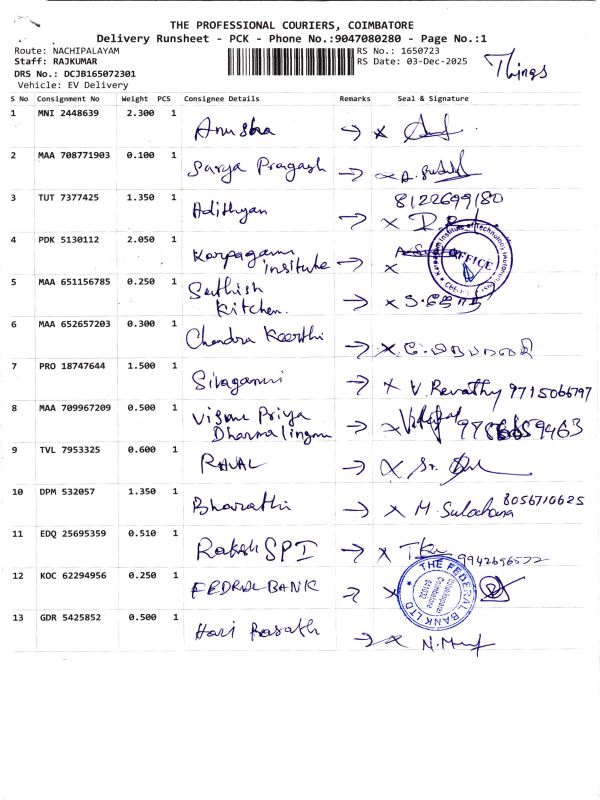 THE PROFESSIONAL COURIERS, COIMBATORE
Delivery Runsheet - PCK - Phone No.:9047080280 - Page No.:1
Route: NACHIPALAYAM
Staff: RAJKUMAR
DRS No.: DCJB165072301
Vehicle: EV Delivery
RS No.: 1650723
RS Date: 03-Dec-2025
Things
S No Consignment No Weight PCS Consignee Details Remarks Seal & Signature
1 MNI 2448639 2.300 1 Anusha → x
2 MAA 708771903 0.100 1 Surya Pragash → x
3 TUT 7377425 1.350 1 Adithyan → x 8122699180
4 PDK 5130112 2.050 1 Karpagam
Insitute → x
OFFICE
5 MAA 651156785 0.250 1 Sathish
Kitchen. → x
6 MAA 652657203 0.300 1 Chandra Keerthi → x
7 PRO 18747644 1.500 1 Sivagami → x V. Revathy 9715066797
8 MAA 709967209 0.500 1 Priya
→ x
9 TVL 7953325 0.600 1 → x
10 DPM 532057 1.350 1 Bharathi → x M. Sulochana 8056710625
11 EDQ 25695359 0.510 1 SPI → x
12 KOC 62294956 0.250 1 FEDRAL BANK → x
THE FEDERAL BANK LTD
Coimbatore
641032
13 GDR 5425852 0.500 1 Hari → x